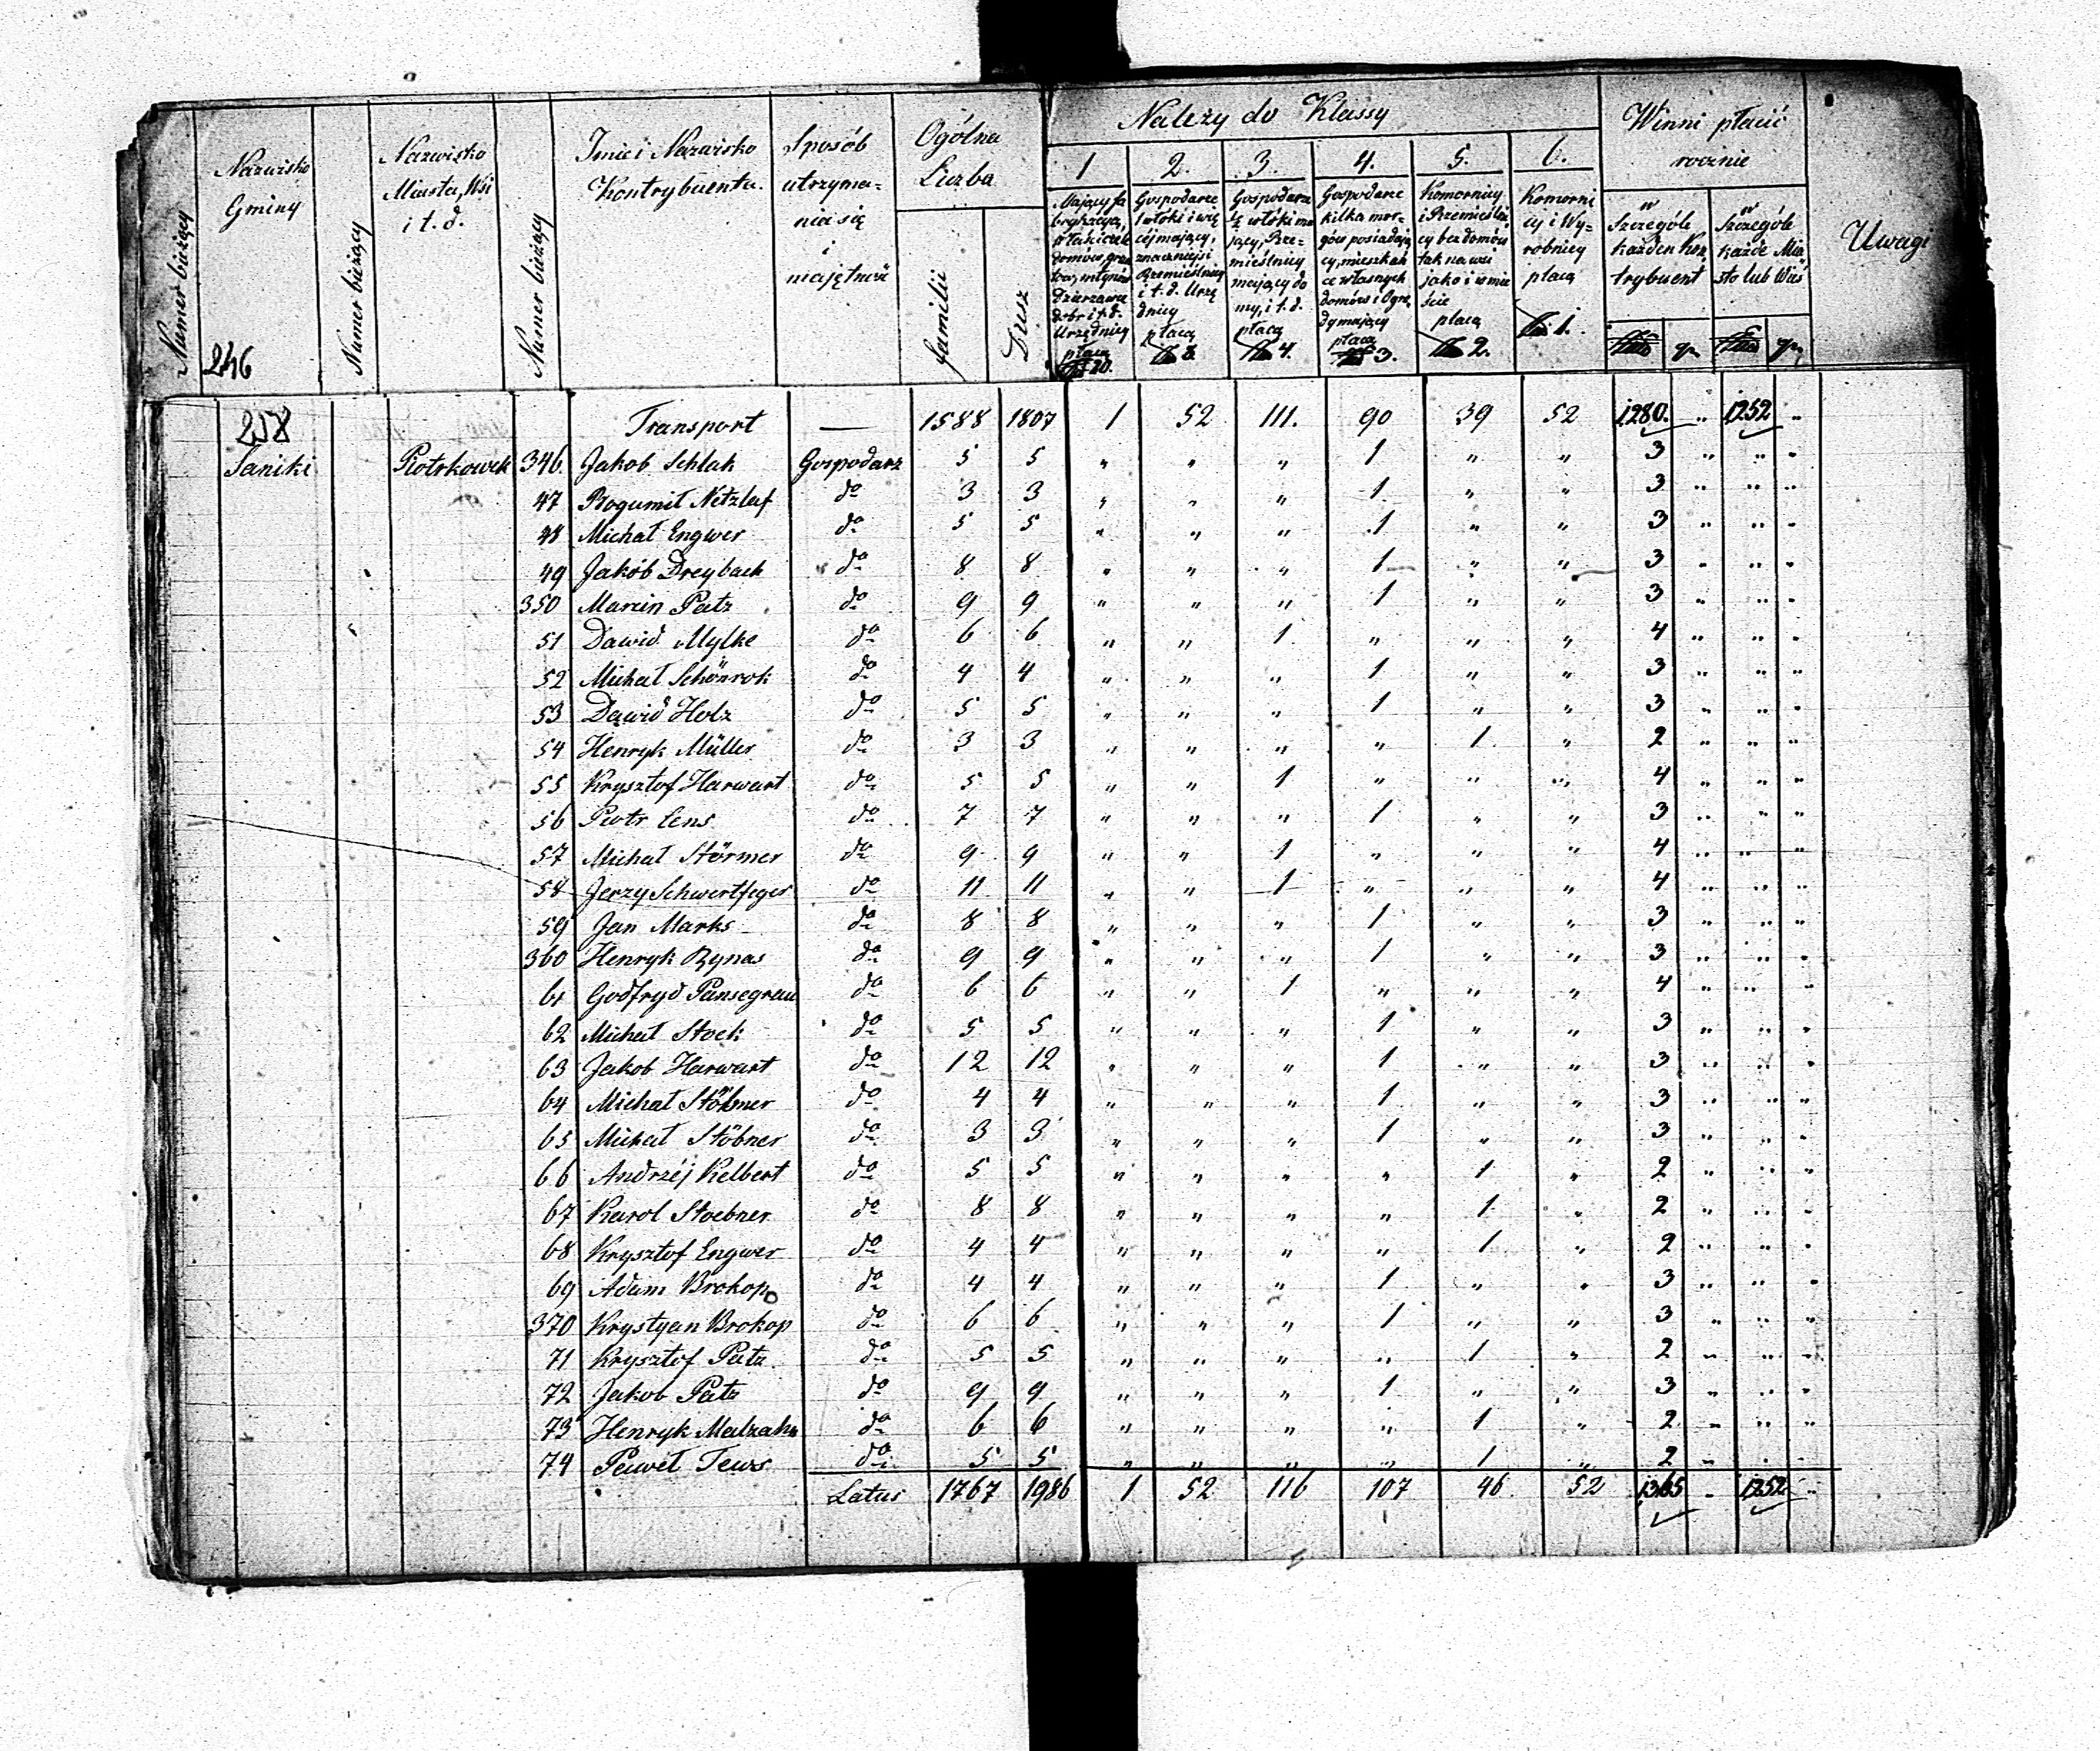 Numer bieżący
Nazwisko
Gminy
246
Numer bieżący
Nazwisko
Miasta, Wsi
i t. d.
Numer bieżący
Imie i Nazwisko
Kontrybuenta.
Sposób
utrzyma=
nia się
i
majętność
Ogólna
Liczba
familii
Dusz
Należy do Klassy
1
Mający fa
domów,
dobr i t. d.
Urzędnicy
płacą
20.
2.
Gospodarze
1 włóki i wię
céj mający,
znaczniejsi
Rzemieślnicy
i t. d. Urzę
dnicy
płacą
3.
Gospodarze
½ włóki ma
jący, Rze=
mieślnicy
mający do
my, i t. d.
płacą
4.
4.
Gospodarze
kilka mor=
gów posiadają
cy, mieszkań
ce własnych
domów i Ogro
dy mający
płacą
3.
5.
Komornicy
i Rzemieślni
cy bez domów
tak na wsi
jako i w mie
ście
płacą
2.
6.
Komorni
cy i Wy=
robnicy
płacą
1.
Winni płacić
rocznie
w
Szczególe
każden Kon
trybuent
gr.
w
Szczególe
każde Mia
sto lub Wieś
gr.
Uwagi
258 Transport — 1588 1807 1 52 111. 90 39 52 1280. " 1252 "
Saniki Piotrkowek 346 Jakob Schlak Gospodarz 5 5 " " " 1 " " 3 " " "
47 Bogumił Netzlaf do 3 3 " " " 1 " " 3 " " "
48 Michał Engwer do 5 5 " " " 1 " " 3 " " "
49 Jakób Dreybach do 8 8 " " " 1 " " 3 " " "
350 Marcin Patz do 9 9 " " " 1 " " 3 " " "
51 Dawid Mylke do 6 6 " " 1 " " " 4 " " "
52 Michał Schönrok do 4 4 " " " 1 " " 3 " " "
53 Dawid Holz do 5 5 " " " 1 " " 3 " " "
54 Henryk Müller do 3 3 " " " " 1 " 2 " " "
55 Krysztof Harwart do 5 5 " " 1 " " " 4 " " "
56 Piotr Lens do 7 7 " " " 1 " " 3 " " "
57 Michał Störmer do 9 9 " " 1 " " " 4 " " "
58 Jerzy Schwertfeger do 11 11 " " 1 " " " 4 " " "
59 Jan Marks do 8 8 " " " 1 " " 3 " " "
360 Henryk Rynas do 9 9 " " " 1 " " 3 " " "
61 Godfryd Pansegrau do 6 6 " " 1 " " " 4 " " "
62 Michał Stock do 5 5 " " " 1 " " 3 " " "
63 Jakob Harwart do 12 12 " " " 1 " " 3 " " "
64 Michał Stöbner do 4 4 " " " 1 " " 3 " " "
65 Michał Stöbner do 3 3 " " " 1 " " 3 " " "
66 Andrzéj Kelbert do 5 5 " " " " 1 " 2 " " "
67 Karol Stoebner do 8 8 " " " " 1 " 2 " " "
68 Krysztof Engwer do 4 4 " " " " 1 " 2 " " "
69 Adam Brokop do 4 4 " " " 1 " " 3 " " "
370 Krystyan Brokop do 6 6 " " " 1 " " 3 " " "
71 Krysztof Patz do 5 5 " " " " 1 " 2 " " "
72 Jakob Patz do 9 9 " " " 1 " " 3 " " "
73 Henryk Malzahn do 6 6 " " " " 1 " 2 " " "
74 Paweł Tews do 5 5 " " " " 1 " 2 " " "
Latus 1767 1986 1 52 116 107 46 52 1365 " 1252 "